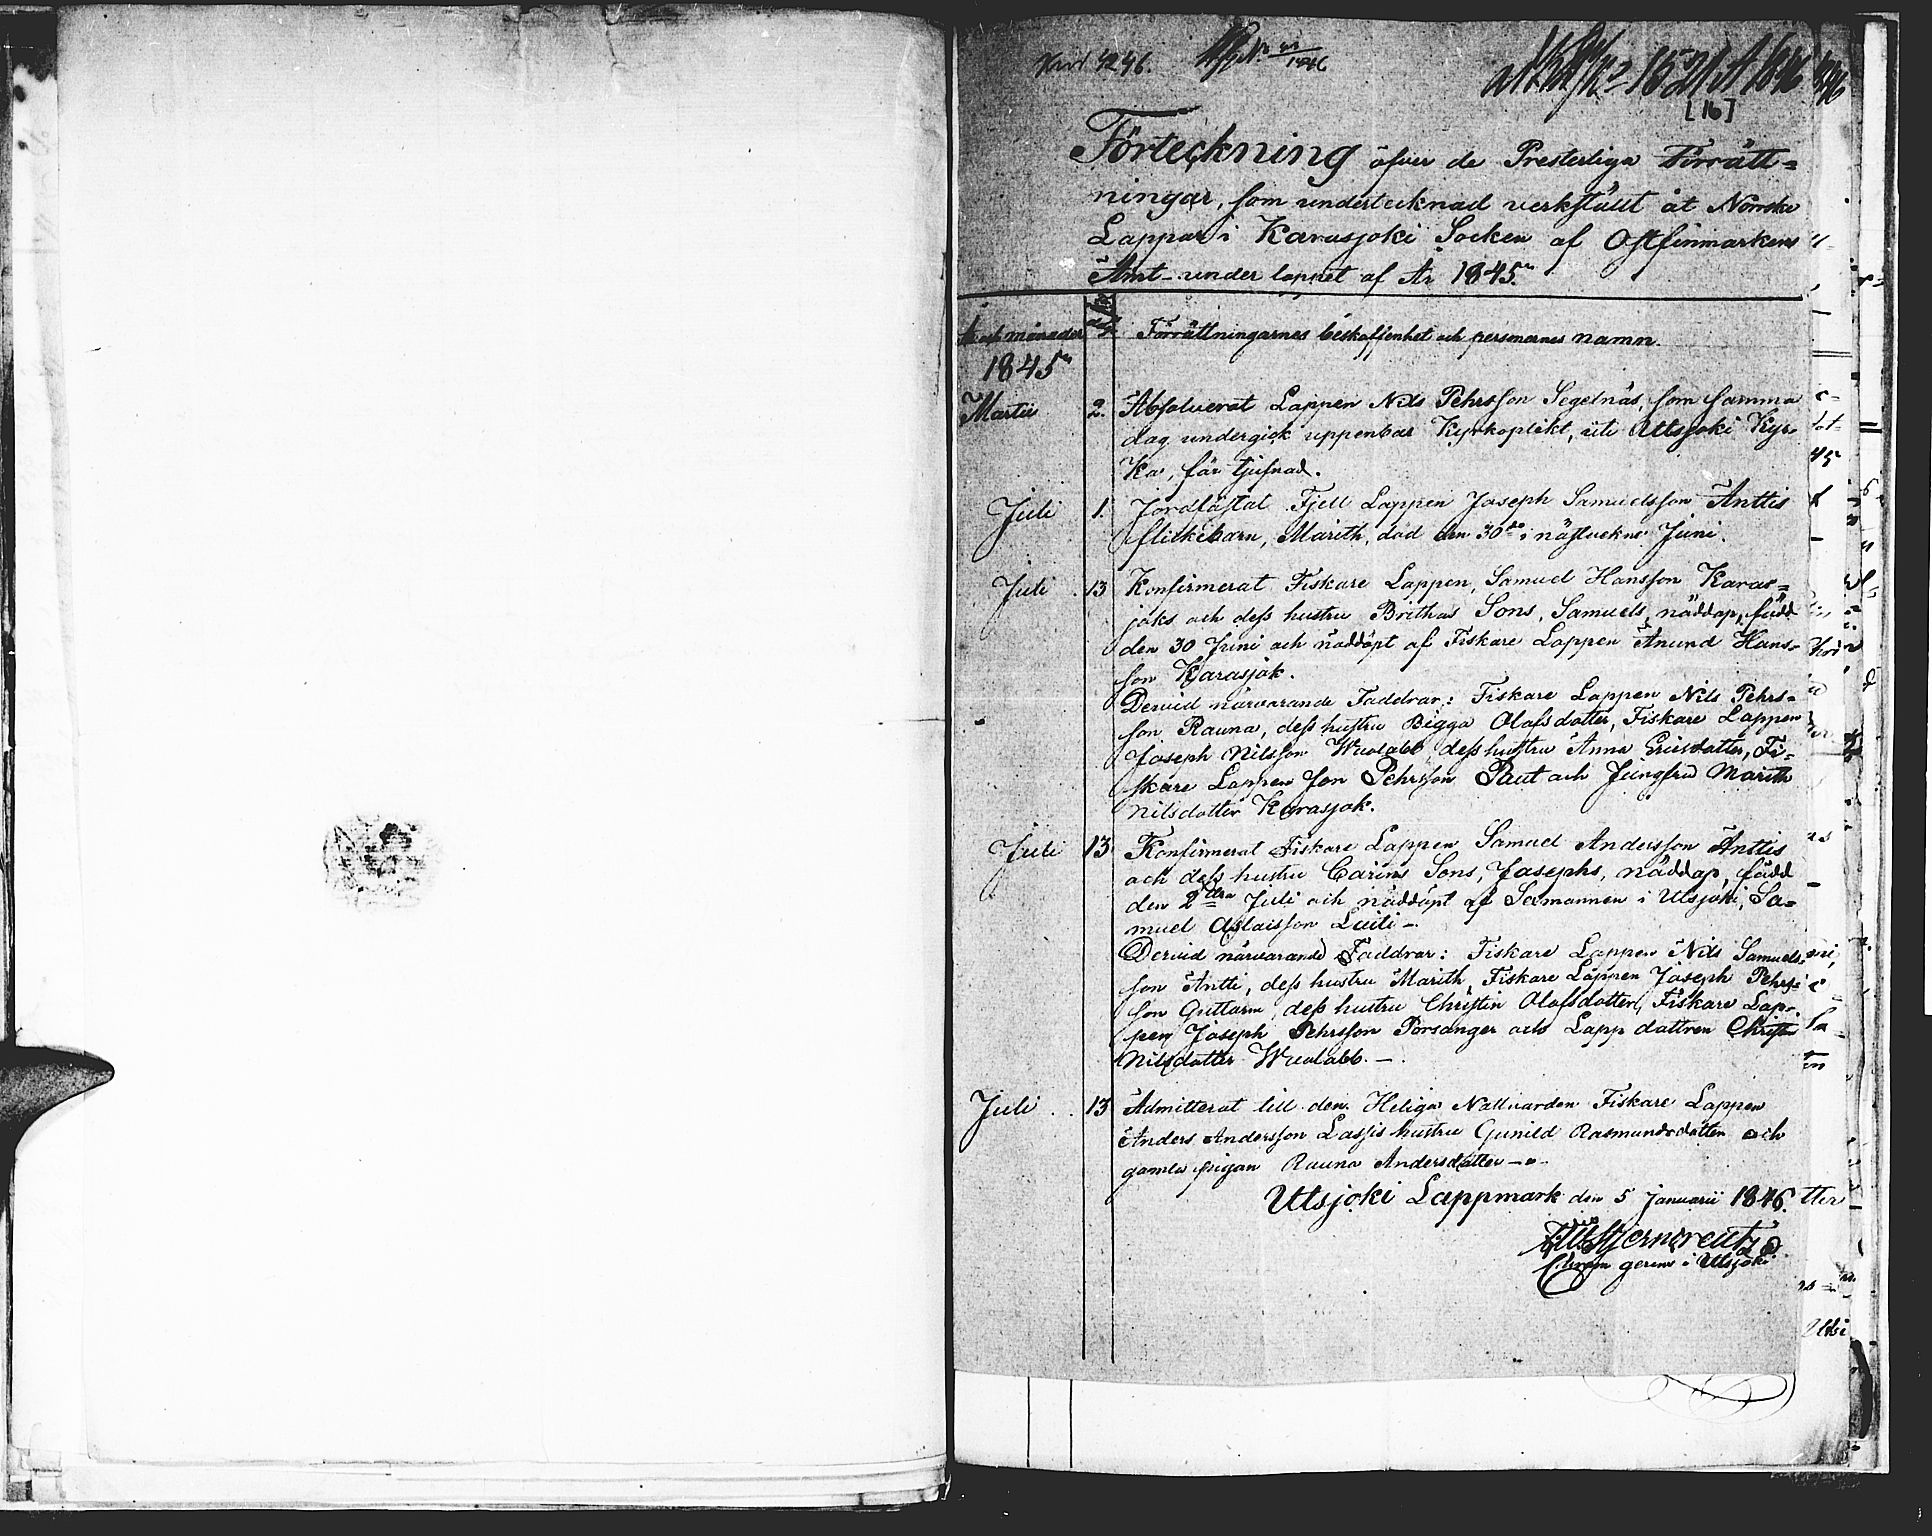 [16]
Förteckning öfver de Presterliga Förrätt=
ningar, som undertecknad verkstält åt Norrske
Lappar i Karasjoki Socken af Ostfinmarkens
Amt under loppet af År 1845.
Förrättningarnes beskaffenhet och personernes namn.
1845
Martii 2. Absolverat Lappen Nils Pehrsson Segelnäs, som samma
dag undergick uppenbar Kyrkoplikt, uti Uttsjoki Kyr-
ka, för tjufnad.
Juli 1. Jordfästat Fjell Lappen Joseph Samuelsson Anttis
flickebarn, Marith, död den 30de i nästvekne Juni.
Juli 13 Konfirmerat Fiskare Lappen, Samuel Hansson Karas=
joks och dess hustru Brithas Sons, Samuels, nöddop, född
den 30 Juni och nöddöpt af Fiskare Lappen Anund Hans-
son Karasjok.
Dervid närvarande Faddrar: Fiskare Lappen Nils Pehrs-
son Rauna, dess hustru Bigga Olafsdotter, Fiskare Lappen
Joseph Nilsson Wuolabb, dess hustru Anna Ericsdotter, Fi-
skare Lappen Jon Pehrsson Paut och Jungfru Marith
Nilsdotter Karasjok.
Juli 13 Konfirmerat Fiskare Lappen Samuel Andersson Anttis
och dess hustru Carins Sons, Josephs, nöddop, född
den 2dra Juli och nöddöpt af Sexmannen i Utsjoki, Sa=
muel Aslaisson Luiti -.
Dervid närvarande Faddrar: Fiskare Lappen Nils Samuels-
son Antti, dess hustru Marith, Fiskare Lappen Joseph Pehrs-
son Guttorm, dess hustru Christin Olofsdotter, Fiskare Lap-
pen Joseph Pehrsson Porsanger och Lapp dottren Christin
Nilsdotter Wuolabb. -.
Juli . . 13 Admitterat till den Heliga Nattvarden Fiskare Lappen
Anders Andersson Lassis hustru Gunild Rasmundsdotter och
gamla pigan Rauna Andersdotter -
Utsjoki Lappmark den 5 Januarii 1846.
gerens i Utsjoki